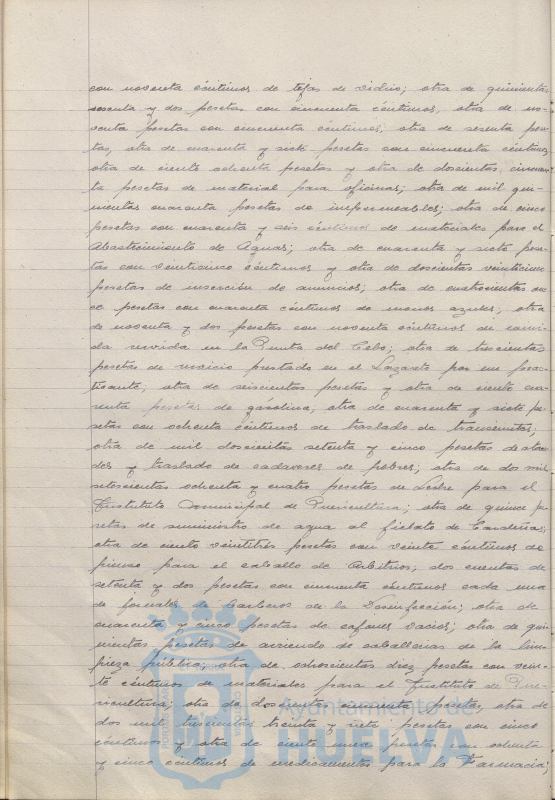 con noventa céntimos de tejas de vidrio; otra de quinientas
sesenta y dos pesetas con cincuenta céntimos, otra de no-
venta pesetas con cincuenta céntimos, otra de sesenta pese-
tas, otra de cuarenta y siete pesetas con cincuenta céntimos
otra de ciento ochenta pesetas y otra de doscientas cincuen-
ta pesetas de material para oficinas; otra de mil qui-
nientas cuarenta pesetas de impermeables; otra de cinco
pesetas con cuarenta y seis céntimos de materiales para el
Abastecimiento de Aguas; otra de cuarenta y siete pese-
tas con veinticinco céntimos y otra de doscientas veinticinco
pesetas de inserción de anuncios; otra de cuatrocientas on-
ce pesetas con cuarenta céntimos de monos azules; otra
de noventa y dos pesetas con noventa céntimos de comi-
da servida en la Punta del Sebo; otra de trescientas
pesetas de servicio prestado en el Lazareto por un prac-
ticante; otra de seiscientas pesetas y otra de ciento cua-
renta pesetas de gasolina; otra de cuarenta y siete pe-
setas con ochenta céntimos de traslado de transeuntes;
otra de mil doscientas setenta y cinco pesetas de ataú-
des y traslado de cadaveres de pobres; otra de dos mil
setecientas ochenta y cuatro pesetas de Leche para el
Instituto Municipal de Puericultura; otra de quince pe-
setas de suministro de agua al fielato de Cardeñas;
otra de ciento veintitrés pesetas con veinte céntimos de
pienso para el caballo de Arbitrios; dos cuentas de
setenta y dos pesetas con cincuenta céntimos cada una
de jornales de barberos de la Desinfección; otra de
cuarenta y cinco pesetas de cajones vacios; otra de qui-
nientas pesetas de arriendo de caballerias de la lim-
pieza pública; otra de ochocientas diez pesetas con vein-
te céntimos de materiales para el Instituto de Pue-
ricultura; otra de doscientas cincuenta pesetas, otra de
dos mil trescientas treinta y siete pesetas con cinco
céntimos y otra de ciento once pesetas con ochenta
y cinco céntimos de medicamentos para la Farmacia;
Ayuntamiento
HUELVA